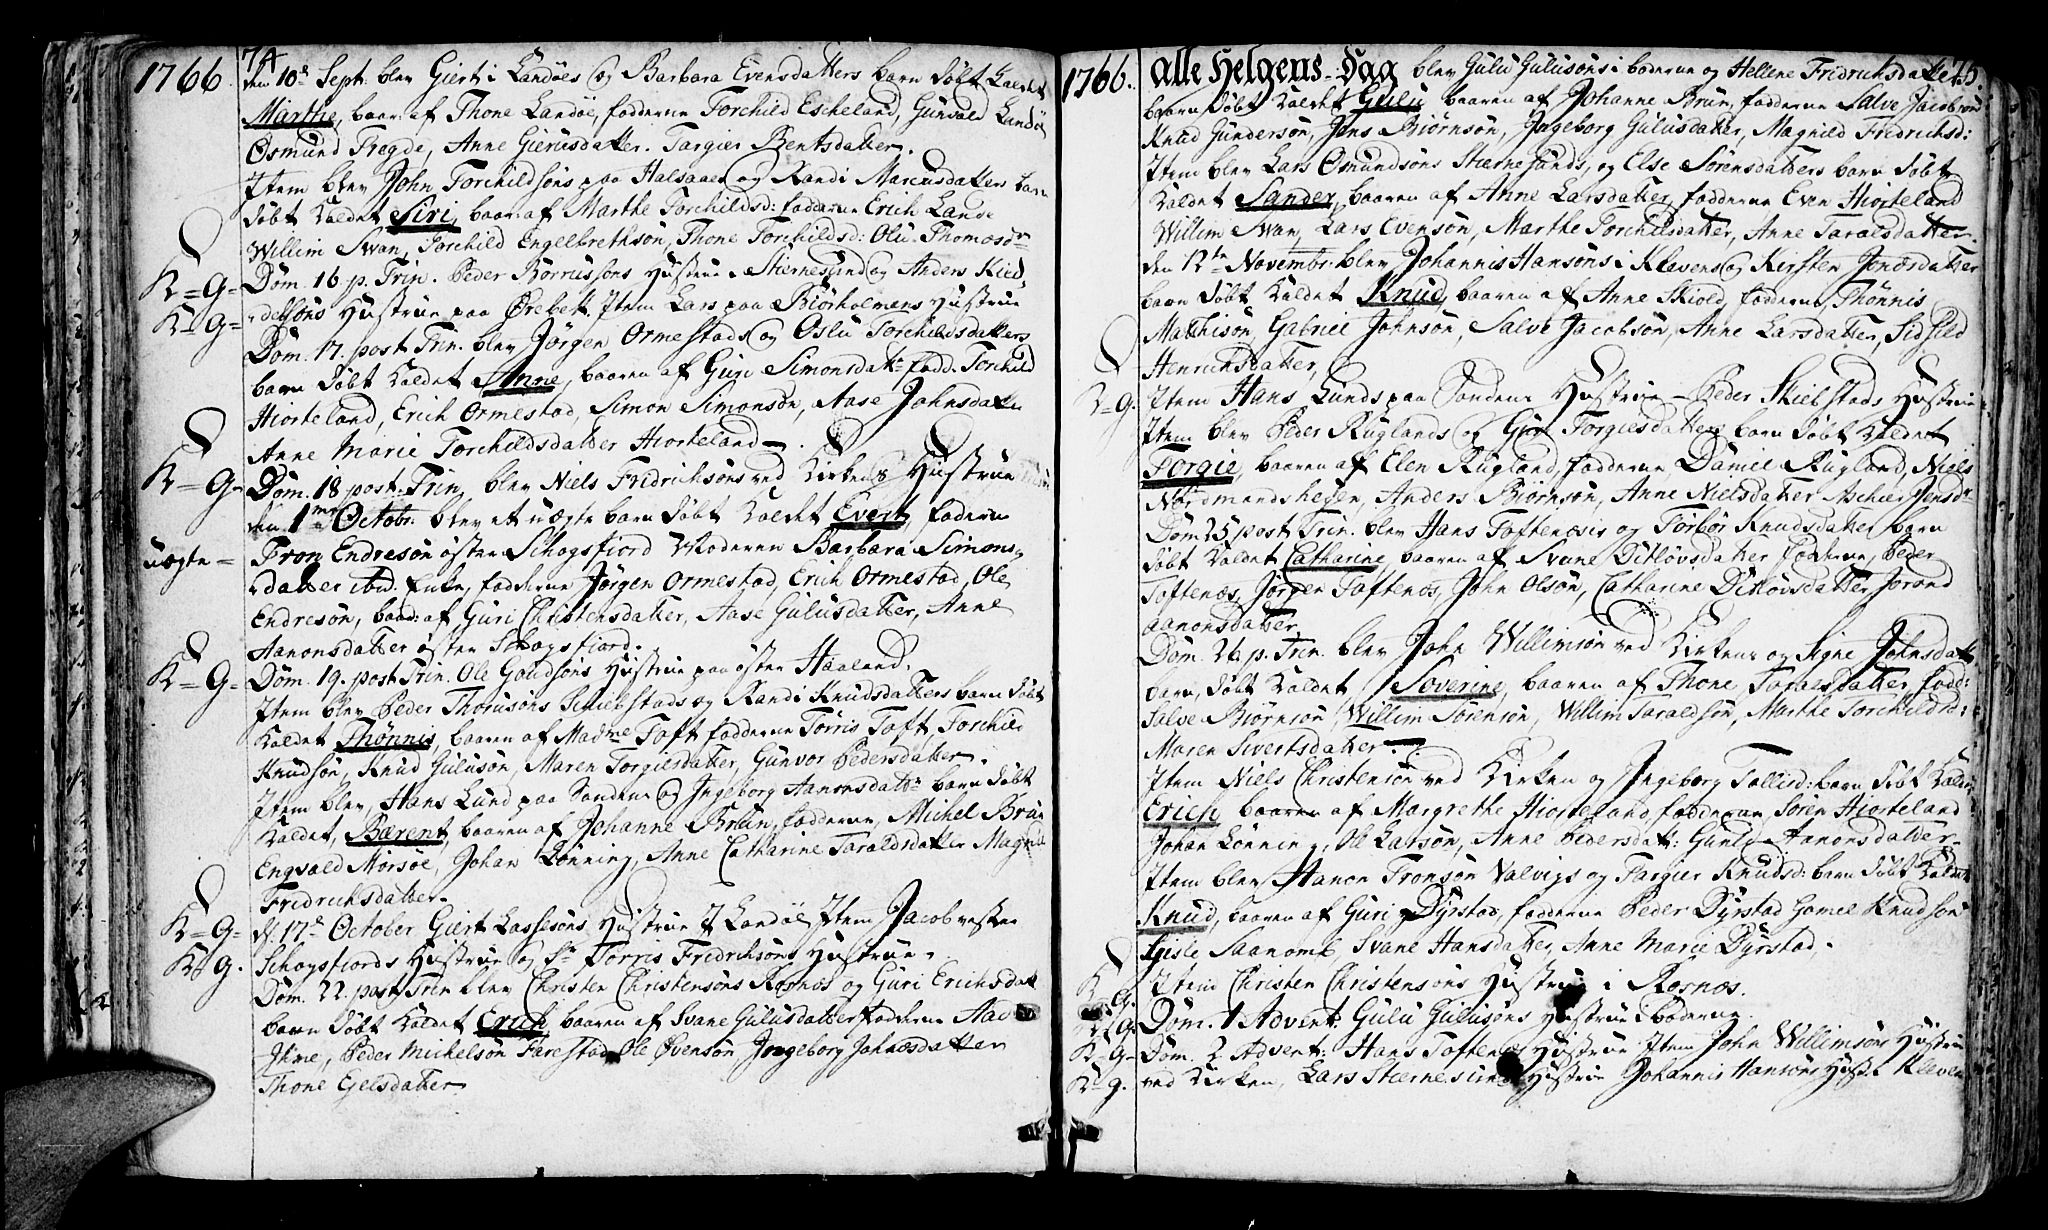 74
1766.
den 10de Sept: blev Giert i Landøes og Barbara Evensdatters barn døbt kaldet
Marthe, baar: af Thone Landøe, fadderne Torchild Escheland, Gunvald Landøe
Osmund Tregde, Anne Gierusdatter. Targier Bentsdatter.
Item blev John Torchildsøns paa Halsaae og Randi Marcusdatters barn
døbt kaldet Siri, baar: af Marthe Torchildsd: fadderne Erich Lande
Willim Swan, Torchild Engelbrethsøn, Thone Torchildsd: Olu Thomasdr
K=G= Dom. 16. p. Trin. Peder Børrussøns Hustrue i Stiernesund og Anders Kied
K=G= delsøns Hustrue paa Ørebek, Item Lars paa Biørholmens Hustrue
Dom. 17. post Trin. blev Jørgen Ormestads og Oslu Torchildsdatters
barn døbt kaldet Anne, baaren af Guri Simonsdatr fadd: Torchild
Hiorteland, Erich Ormestad, Simon Simonsøn, Aase Johnsdatter
Anne Marie Torchildsdatter Hiorteland.
K=G= Dom. 18 post Trin. blev Niels Fredrichsøns ved Kirkens Hustrue
den 1me Octobr: blev et uægte barn døbt kaldet Evert, faderen
uægte= Tron Endresøn østen Schogsfiord Moderen Barbara Simons
datter ibid. Enke, fadderne Jørgen Ormestad, Erich Ormestad, Ole
Endresøn, baar: af Guri Christensdatter, Aase Gulusdatter, Anne
Aanonsdatter østen Schogsfiord.
K=G= Dom. 19. post Trin. Ole Goudsøns Hustrue paa østen Haaland.
Item blev Peder Thorusøns Skiebstads og Randi Knudsdatters barn døbt
kaldet Thønnis, baaren af Madme Toft fadderne Torris Toft, Torchild
Knudsøn, Knud Gulusøn, Maren Torgiesdatter, Gunvor Pedersdatter.
Item blev, Hans Lund paa Sanden og Ingeborg Aanonsdattr barn døbt
kaldet, Bærent, baaren af Johanne Brün, fadderne, Michel Brün
Engvald Morsøe, Johan Lønning, Anne Catharine Taraldsdatter Magnild
Fredrichsdatter.
K=G= d. 17de October Giert Lassesøns Hustrue i Landøe Item Jacob vesten
K=g. Schogsfiords Hustrue og Sr Torris Fredrichsøns Hustrue.
Dom. 22. post Trin blev Christen Christensøns Rosnæs og Guri Erichsdatr
barn døbt kaldet Erich, baaren af Svane Gulusdatter fadderne Aad
Ihme, Peder Michelsøn Farestad, Ole Evensøn, Ingeborg Johansdatter
Thone Ejelsdatter
75.
1766. Alle Helgens-Dag blev Gulu Gulusøns i boderne og Hellene Fridrichsdatters
baarn døbt kaldet Gulu baaren af Johanne Brün, fadderne Salve Jacobsøn
Knud Gundersøn, Jens Biørnsøn, Ingeborg Gulusdatter, Magnild Fredrichsd:
Item blev Lars Osmundsøns Stiernesunds, og Else Sørensdatters barn døbt
kaldet Sander, baaren af Anne Larsdatter, fadderne Even Hiorteland
Willim Swan, Lars Evensøn, Marthe Torchildsdatter, Anne Taralsdatter.
den 12te Novembr: blev Johannis Hansøns i Klevens og Kirsten Jensdatter
barn døbt kaldet Knud, baaren af Anne Skiold, fadderne, Thønnis
Mathisøn, Gabriel Johnsøn, Salve Jacobsøn, Anne Larsdatter, Sidsild
Henrichsdatter,
K=g. Item Hans Lunds paa Sandens Hustrue - Peder Skiebstads Hustrue
Item blev Peder Ruglands og Guri Torgiesdatters barn døbt kaldet
Torgie, baaren af Elen Rugland, fadderne Daniel Rugland, Niels
Nordmandshegen, Anders Biørnsøn, Anne Nielsdatter Aschier Jensdr
Dom. 25. post Trin. blev Hans Toftenæsis og Torbor Knudsdatter barn
døbt kaldet Catharine, baaren af Svane Ditlovsdatter fadderne, Peder
Toftenæs, Jørgen Toftenæs, John Olsøn, Catharine Ditlovsdatter Jorand
Aanonsdatter
Dom. 26. p. Trin. blev John Willimsøn ved Kirkens og Signe Johnsdatr
barn, døbt kaldet Soverine, baaren af Thone Taralsdatter, fadd:
Salve Biørnsøn, Willim Sørensøn, Willim Taraldsøn, Marthe Torchildsd:
Maren Sivertsdatter.
Item Niels Christensøn ved Kirken og Ingeborg Tallisd: barn døbt kaldet
Erich baaren af Margrethe Hiorteland, fadderne Søren Hiorteland
Johan Lønning, Ole Larsøn, Anne Pedersdatt: Gunld Aanonsdatter
Item blev Aanon Tronsøn Valvigs og Targier Knudsd: barn døbt kaldet
Knud, baaren af Guri Dyrstad, fadderne Peder Dyrstad Gamel Knudsøn
Gisle Saanom, Svane Hansdatter, Anne Marie Dyrstad,
K=G. Item Christen Christensøns Hustrue i Rosnæs.
K=g. Dom. 1 Advent: Gulu Gulusøns Hustrue i boderne.
K=g= Dom. 2 Advent: Hans Toftenæs Hustrue Item John Willimsøns Hustrue
K=g. ved Kirken, Lars Stiernesunds Hustrue Johannis Hansøns Hust. i Kleven